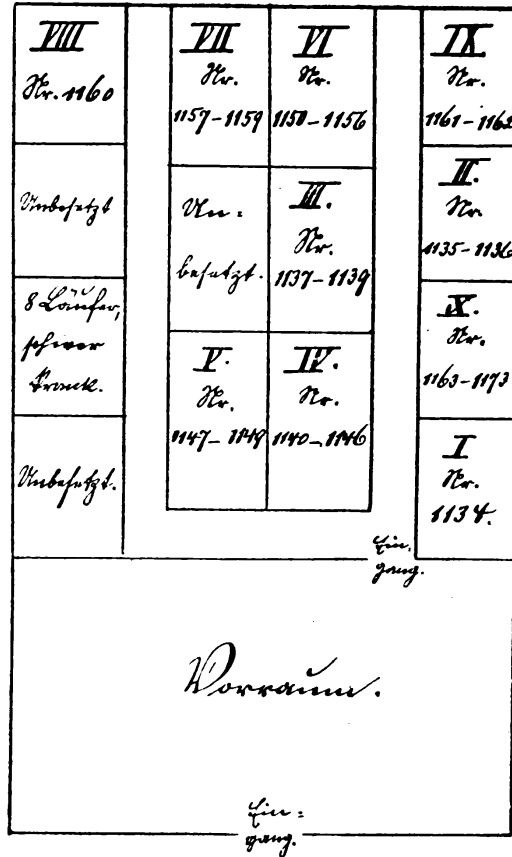 VIII
Nr. 1160
Unbesetzt
8 Läufer,
schwer
krank.
Unbesetzt.
VII
Nr.
1157-1159
VI
Nr.
1150-1156
Un=
besetzt.
III.
Nr.
1137-1139
V.
Nr.
1147-1149
IV.
Nr.
1140-1146
IX
Nr.
1161-1162
II.
Nr.
1135-1136
X.
Nr.
1163-1173
I
Nr.
1134.
Ein-
gang.
Vorraum.
Ein=
gang.